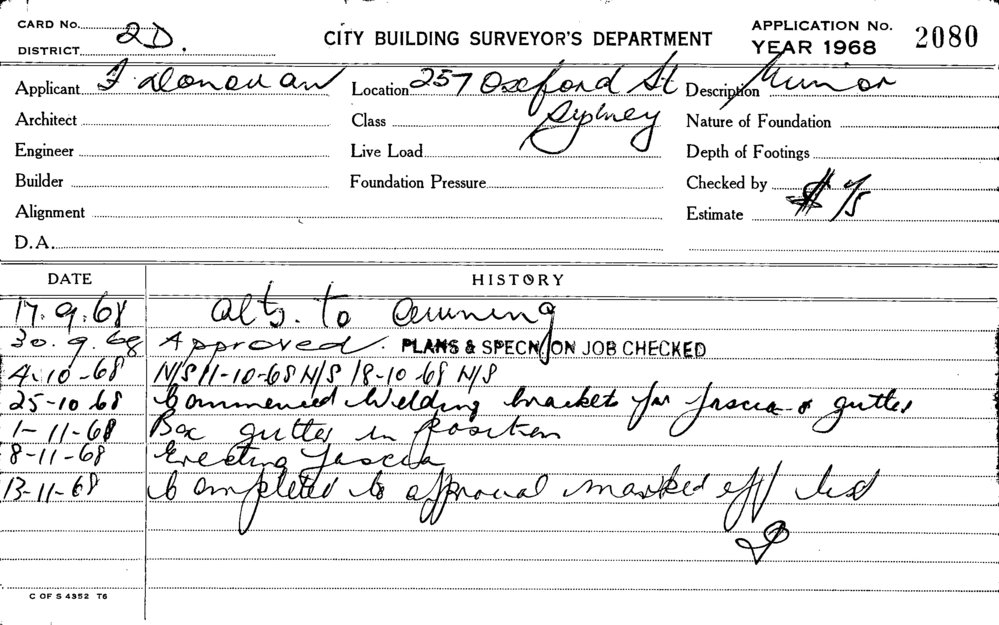 CARD No.
DISTRICT 2D.
CITY BUILDING SURVEYOR'S DEPARTMENT
APPLICATION No.
YEAR 1968 2080
Applicant F Donovan Location 257 Oxford St Description Minor
Architect Class Sydney Nature of Foundation
Engineer Live Load Depth of Footings
Builder Foundation Pressure Checked by
Alignment Estimate
D.A.
DATE HISTORY
17.9.68 Alts. to Awning
30.9.68 Approved. PLANS & SPECN ON JOB CHECKED
4-10-68 N/S 11-10-68 N/S 18-10-68 N/S
25-10 68 Commenced Welding brackets for fascia & gutter
1-11-68 Box gutter in position
8-11-68 Erecting fascia
13-11-68 Completed to approval marked off list
C OF S 4352 T6